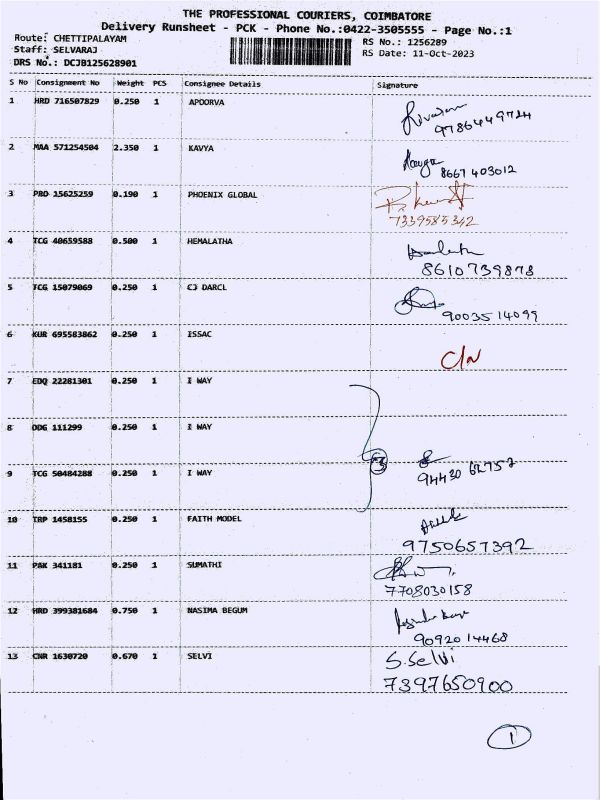 THE PROFESSIONAL COURIERS, COIMBATORE
Delivery Runsheet - PCK - Phone No.:0422-3505555 - Page No.:1
Route: CHETTIPALAYAM RS No.: 1256289
Staff: SELVARAJ RS Date: 11-Oct-2023
DRS No.: DCJB125628901
S No Consignment No Weight PCS Consignee Details Signature
1 HRD 716507829 0.250 1 APOORVA
9786449724
2 MAA 571254504 2.350 1 KAVYA Kavya
8667403012
3 PBD 15625259 0.190 1 PHOENIX GLOBAL
7339585342
4 TCG 40659588 0.500 1 HEMALATHA
8610739878
5 TCG 15079069 0.250 1 CJ DARCL
9003514099
6 KUR 695583862 0.250 1 ISSAC
C/N
7 EDQ 22281301 0.250 1 I WAY
8 ODG 111299 0.250 1 I WAY
3
9 TCG 50484288 0.250 1 I WAY
94430 62752
10 TRP 1458155 0.250 1 FAITH MODEL
9750657392
11 P&K 341181 0.250 1 SUMATHI
7708030158
12 HRD 399381684 0.750 1 NASIMA BEGUM
9092014468
13 CNR 1630720 0.670 1 SELVI S.Selvi
7397650900
1